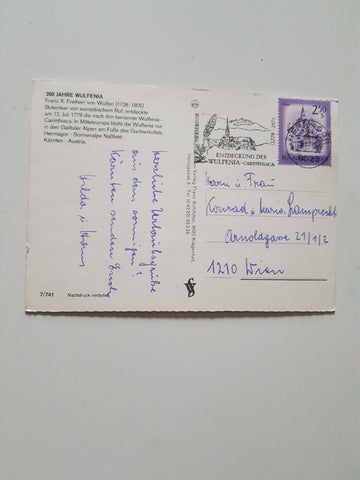 200 JAHRE WULFENIA
Franz X. Freiherr von Wulfen (1728-1805)
Botaniker von europäischem Ruf, entdeckte
am 12. Juli 1779 die nach ihm benannte Wulfenia -
Carinthiaca. In Mitteleuropa blüht die Wulfenia nur
in den Gailtaler Alpen am Fuße des Gartnerkofels.
Hermagor - Sonnenalpe Naßfeld.
Kärnten - Austria.
herzliche Urlaubsgrüße
aus dem sonnigen?
Kärnten senden Euch
Hilde u.
7/741 Nachdruck verboten
Verlag Franz Schilcher, 9020 Klagenfurt
ENTDECKUNG DER
WULFENIA - CARINTHIACA
2.50
Herrn u Frau
Konrad u. Maria Lamprecht
Arnoldgasse 21/1/2
1210 Wien